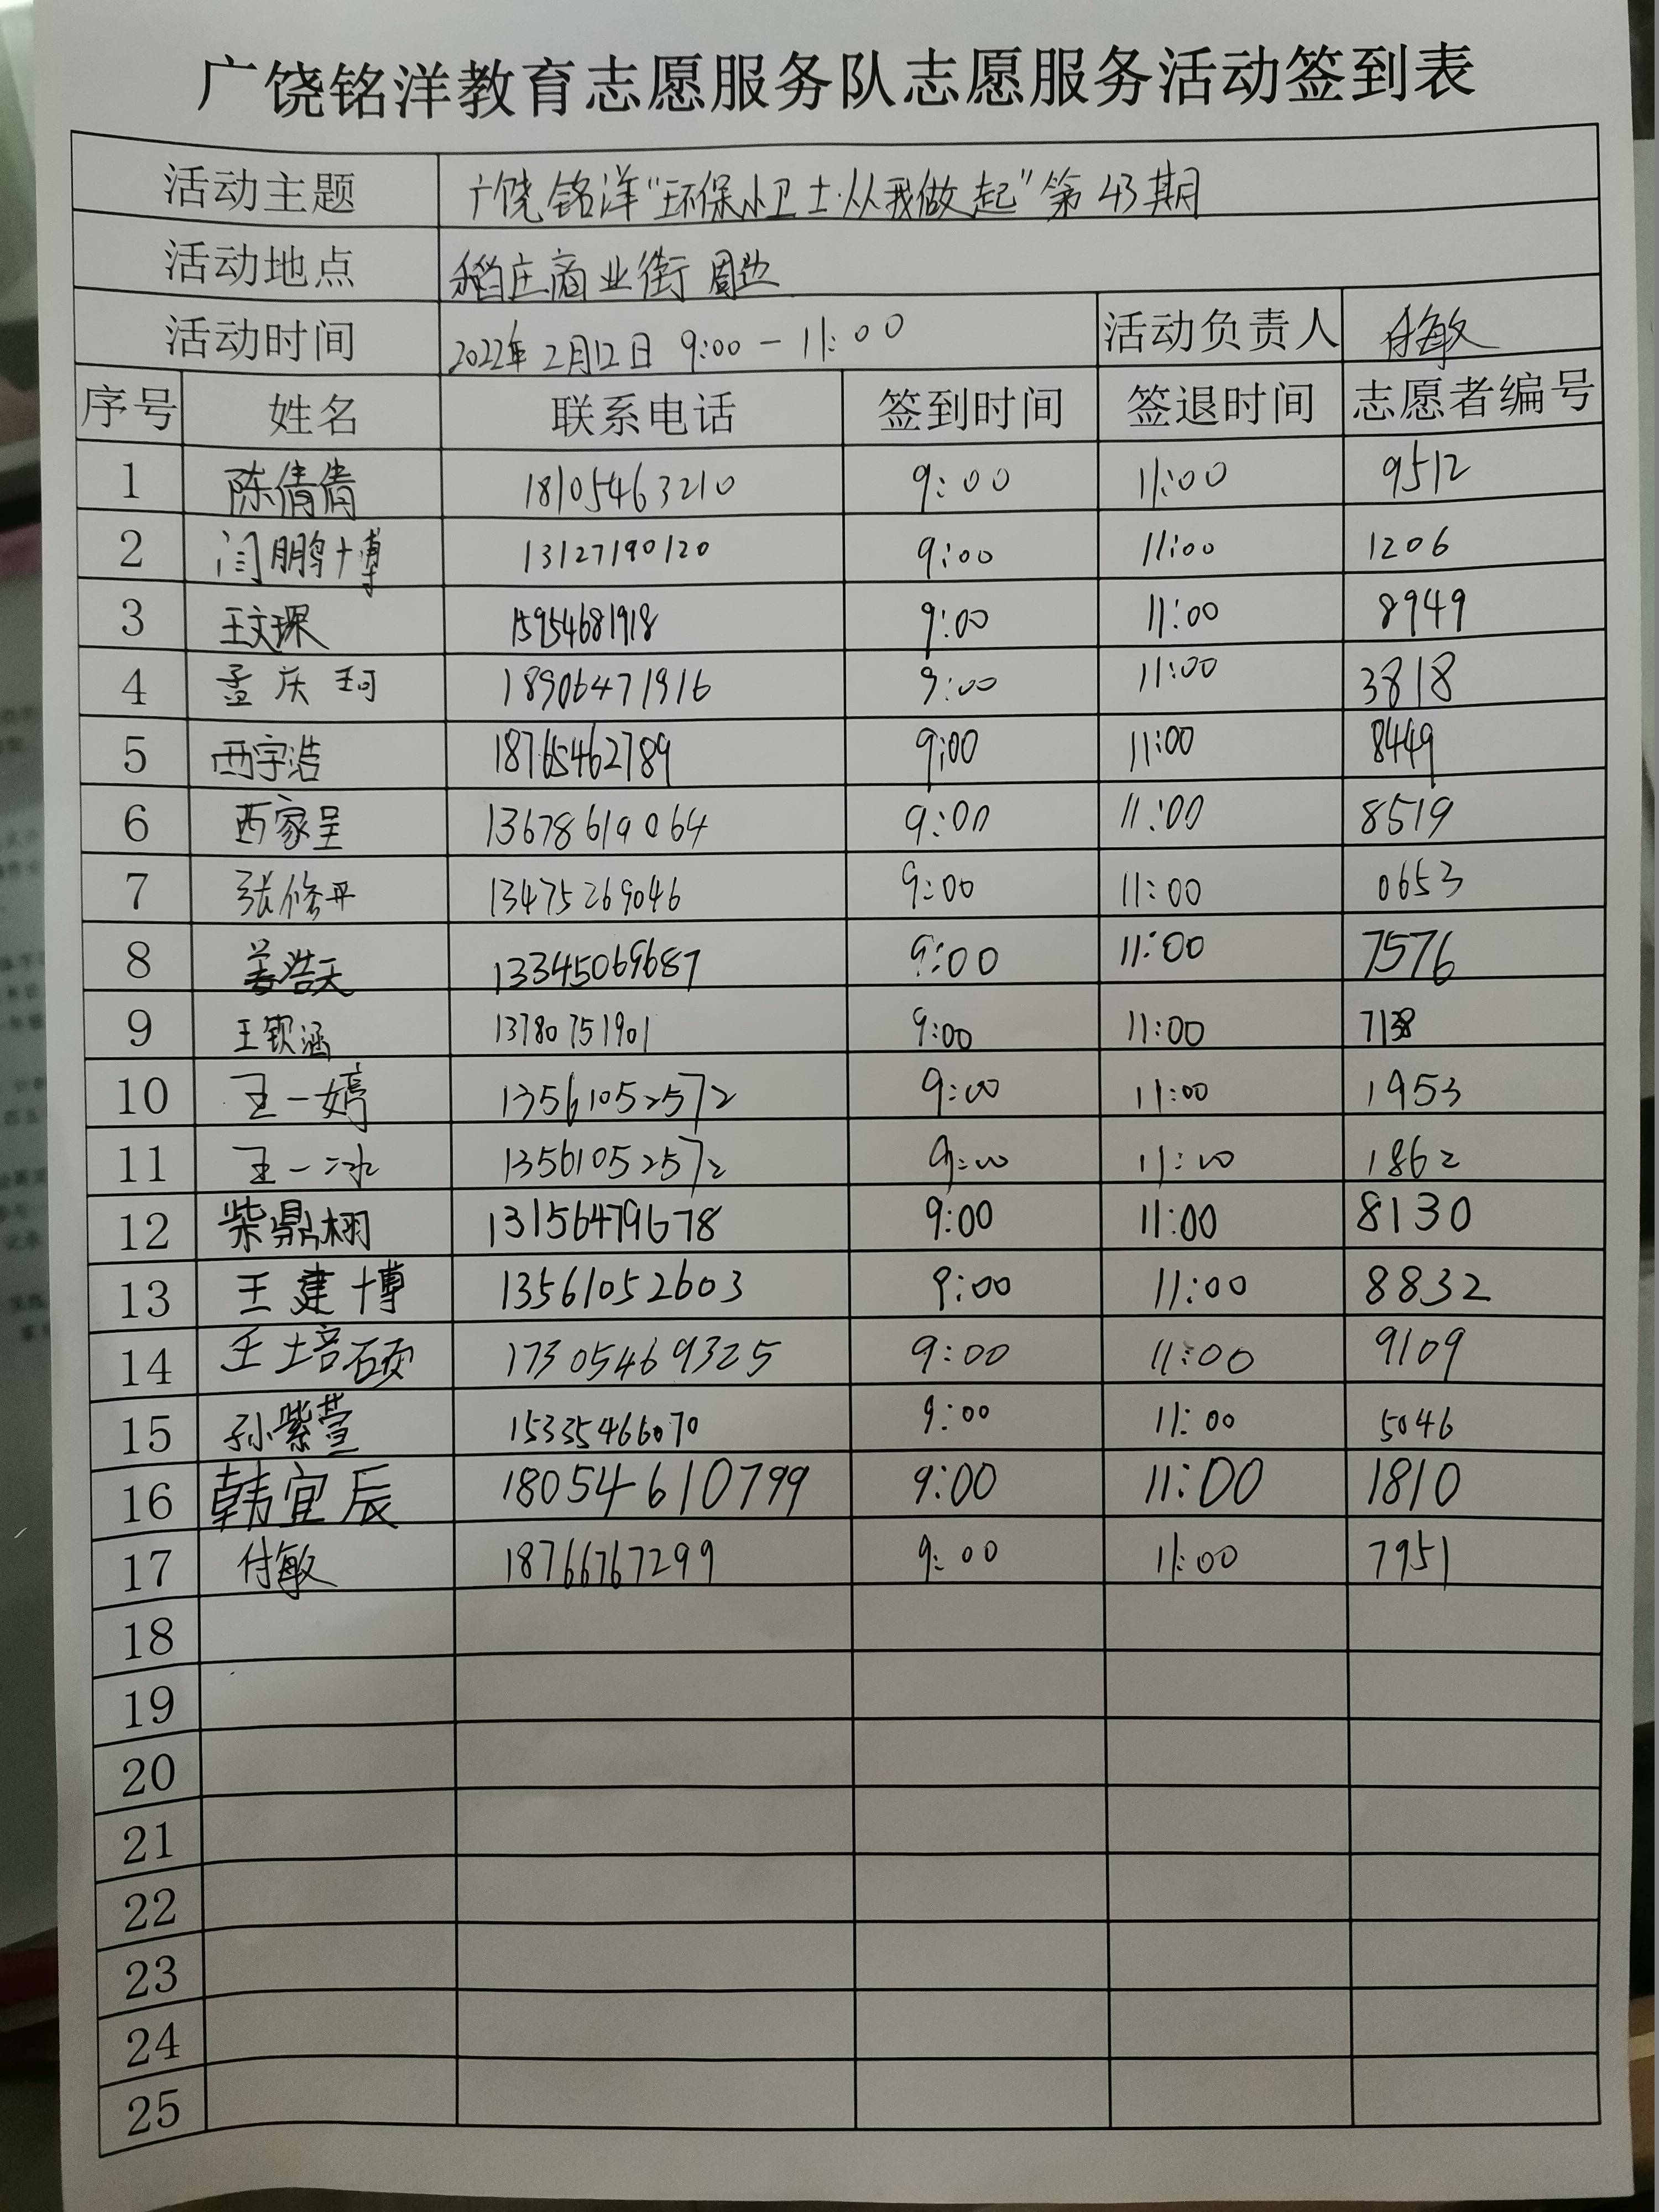 广饶铭洋教育志愿服务队志愿服务活动签到表
活动主题 广饶铭洋"环保小卫士·从我做起"第43期
活动地点 稻庄商业街周边
活动时间 2022年2月12日 9:00-11:00 活动负责人 付敏
序号 姓名 联系电话 签到时间 签退时间 志愿者编号
1 陈倩倩 18105463210 9:00 11:00 9512
2 闫鹏博 13127190120 9:00 11:00 1206
3 王文琛 15954681918 9:00 11:00 8949
4 孟庆珂 18906471916 9:00 11:00 3818
5 西宇浩 18765462789 9:00 11:00 8449
6 西家呈 13678619064 9:00 11:00 8519
7 张修平 13475269046 9:00 11:00 0653
8 姜浩天 13345069687 9:00 11:00 7576
9 王钦涵 13780751901 9:00 11:00 7138
10 王一婷 13561052572 9:00 11:00 1953
11 王一冰 13561052572 9:00 11:00 1862
12 柴鼎栩 13156479678 9:00 11:00 8130
13 王建博 13561052603 9:00 11:00 8832
14 王培硕 17305469325 9:00 11:00 9109
15 孙紫萱 15335466070 9:00 11:00 5046
16 韩宜辰 18054610799 9:00 11:00 1810
17 付敏 18766767299 9:00 11:00 7951
18
19
20
21
22
23
24
25